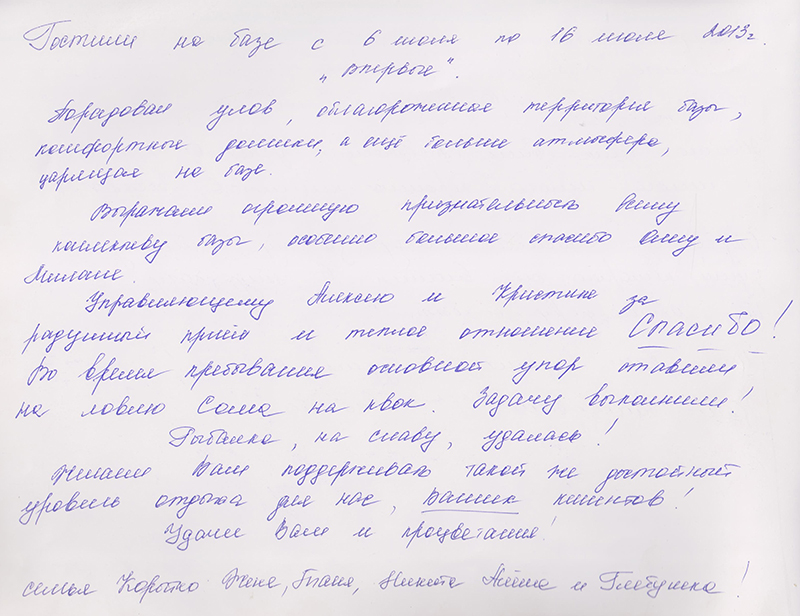 Гостили на базе с 6 июля по 16 июля 2013г.
„Впервые".
Порадовал улов, облагороженная территория базы,
комфортные домики, а ещё больше атмосфера,
царящая на базе.
Выражаем огромную признательность всему
коллективу базы, особенно большое спасибо Олегу и
Милане.
Управляющему Алексею и Кристине за
радушный приём и теплое отношение Спасибо!
Во время пребывания основной упор ставили
на ловлю Сома на квок. Задачу выполнили!
Рыбалка, на славу, удалась!
Желаем Вам поддерживать такой же достойный
уровень отдыха для нас, Ваших клиентов!
Удачи Вам и процветания!
семья Коротко Женя, Таня, Никита Алёша и Глебушка!